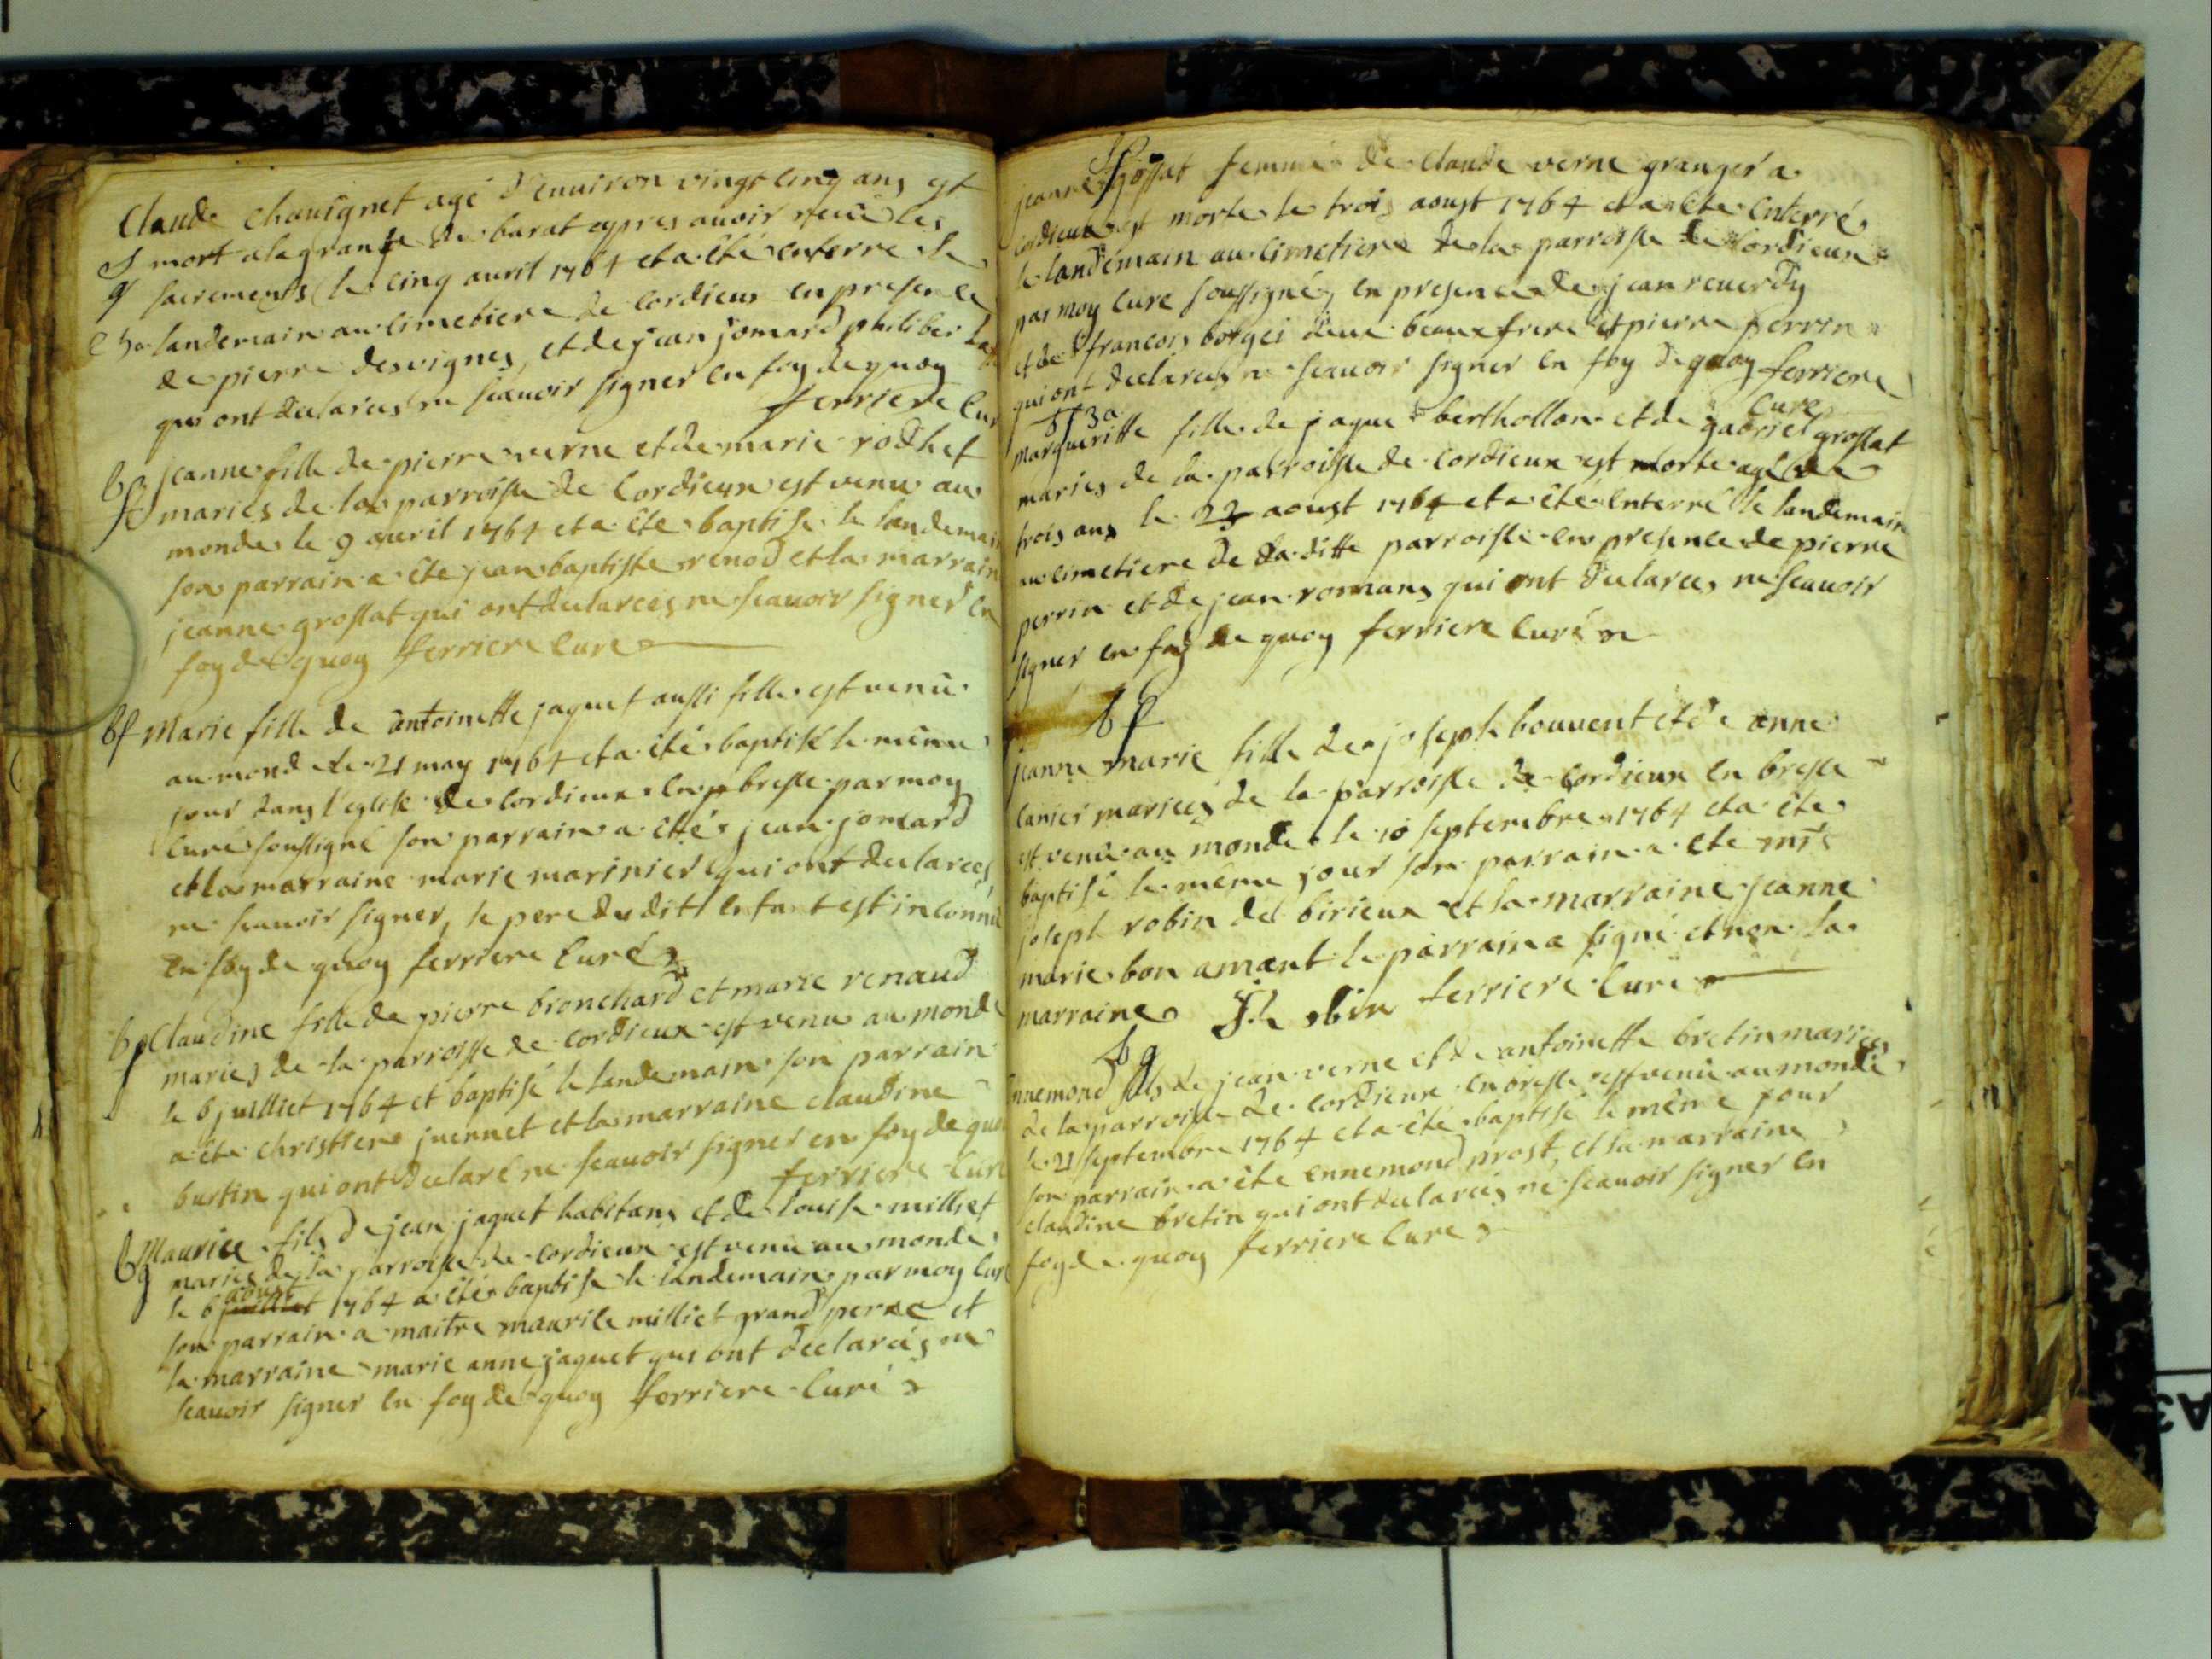 Claude chauignet agé d'enuiron vingt cinq ans est
S mort a la grange de barat appres auoir receu les
g sacrements le cinq auril 1764 et a été enterré le
landemain au cimetiere de cordieux en presence
de pierre desvignes, et de jean jomard philiber
qui ont declarces ne scauoir signer en foy de quoy
ferriere cur
bf jeanne fille de pierre verne et de marie rodhet
mariés de la parroisse de cordieux est venu au
monde le 9 avril 1764 et a été baptisé le landemain
son parrain a été jean baptiste renod et la marrain
jeanne grossat qui ont declarces ne scauoir signer en
foy de quoy ferriere curé
bf Marie fille de antoinette jaquet aussi fille est venu
au monde le 21 may 1764 et a été baptisé le même
jour dans l'eglise de cordieux en bresse par moy
curé soussigné son parrain a été jean jomard
et la marraine marie marinier qui ont declarces
ne scauoir signer, le pere du dit enfant est inconnu
en foy de quoy ferriere curé
bf Claudine fille de pierre bronchard et marie renaud
maries de la parroisse de cordieux est venu au monde
le 6 juilliet 1764 et baptisé le landemain son parrain
a été christien juennet et la marraine claudine
burtin qui ont declaré ne scauoir signer en foy de quoy
ferriere curé
bg Maurice fils de jean jaquet habitans et de louise milliet
mariés de la parroisse de cordieux est venu au monde
aoust
le 6 juilliet 1764 a été baptisé le landemain par moy curé
son parrain a maitre maurice milliet grand perre et
la marraine marie anne jaquet qui ont declarcés ne
scauoir signer en foy de quoy ferriere curé
jeanne femme de Claude verne granger a
cordieux est morte le trois aoust 1764 et a été enterré
le landemain au cimetiere de la parroisse de cordieux
par moy curé soussigné, en presence de jean reuerdy
et de francois borgei deux beaux frere et pierre perrin
qui ont declarces ne scauoir signer en foy de quoy ferriere
curé
Sf 3a
margueritte fille de jaque berthollon et de gabriel grossat
maries de la parroisse de cordieux est morte agé de
trois ans le 23 aoust 1764 et a été enterré le landemain
au cimetiere de la ditte parroisse en presence de pierre
perrin et de jean romans qui ont declarces ne scauoir
signer en foy de quoy ferriere curé
bf
jeanne marie fille de joseph bouuent et de anne
canier mariees de la parroisse de cordieux en bresse
est venu au monde le 10 septembre 1764 et a été
baptisé le même jour son parrain a été mre
joseph robin de birieux et la marraine jeanne
marie bon amant le parrain a signé et non la
marraine J. Robin ferriere curé
bg
Ennemond fils de jean verne et de antoinette bretin mariees
de la parroisse de cordieux en bresse est venu au monde
le 21 septembre 1764 et a été baptisé le même jour
son parrain a été ennemond prost, et la marraine
claudine bretin qui ont declarcés ne scauoir signer en
foy de quoy ferriere curé
A3